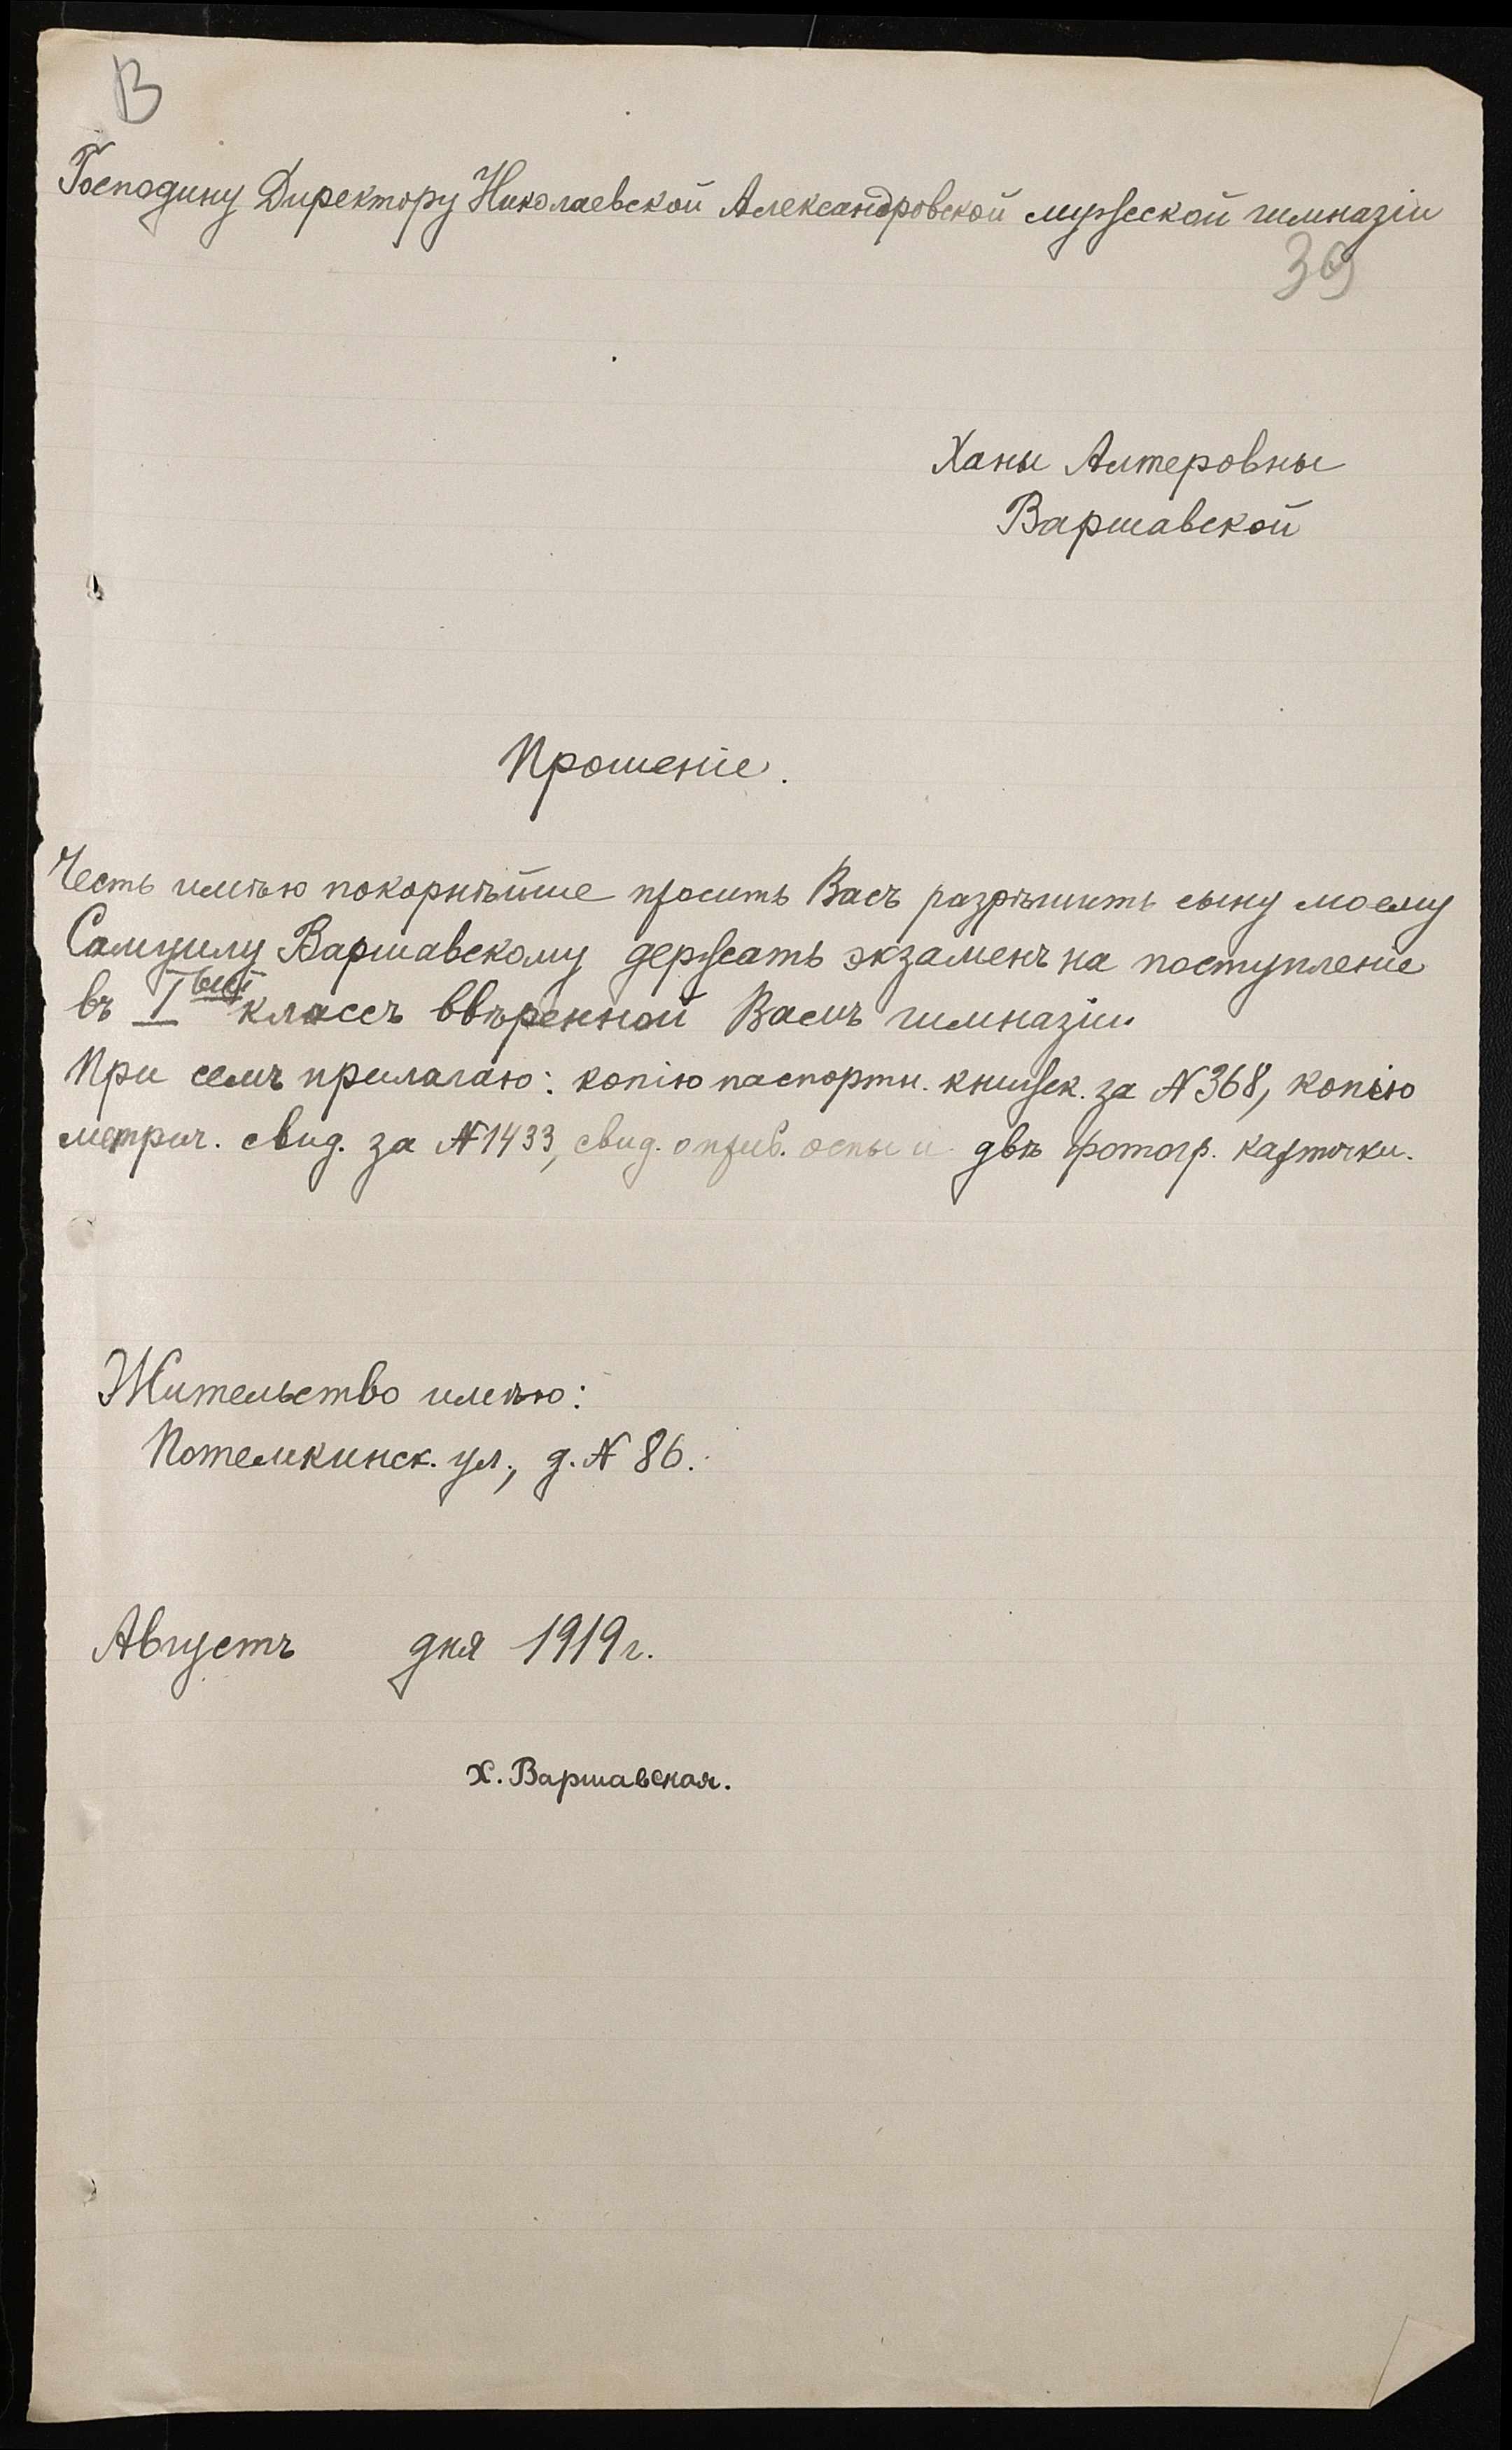 В
Господину Директору Николаевской Александровской мужеской гимназіи
39
Ханы Алтеровны
Варшавской
Прошеніе.
Честь имѣю покорнѣйше просить Васъ разрѣшить сыну моему
Самуилу Варшавскому держать экзаменъ на поступленіе
въ I ый классъ ввѣренной Вамъ гимназіи
При семъ прилагаю: копію паспортн. книжек. за № 368, копію
метрич. свид. за № 1433, свид. о прив. оспы и двѣ фотогр. карточки.
Жительство имѣю:
Потемкинск. ул., д. № 86.
Августъ дня 1919 г.
Х. Варшавская.